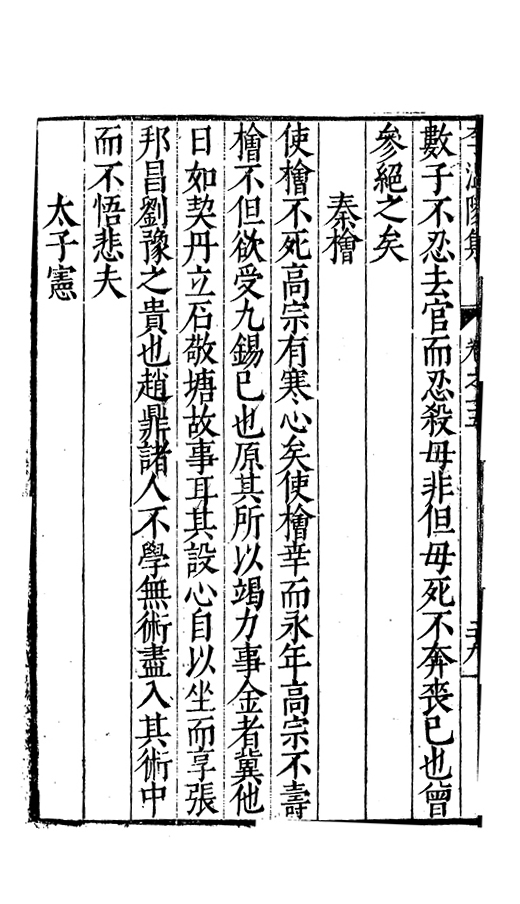 李溫陵集 卷之十五 十九
數子不忍去官而忍殺毋非但毋死不奔喪已也曾
參絕之矣
秦檜
使檜不死高宗有寒心矣使檜幸而永年高宗不壽
檜不但欲受九錫已也原其所以竭力事金者冀他
日如契丹立石敬塘故事耳其設心自以坐而享張
邦昌劉豫之貴也趙鼎諸人不學無術盡入其術中
而不悟悲夫
太子憲